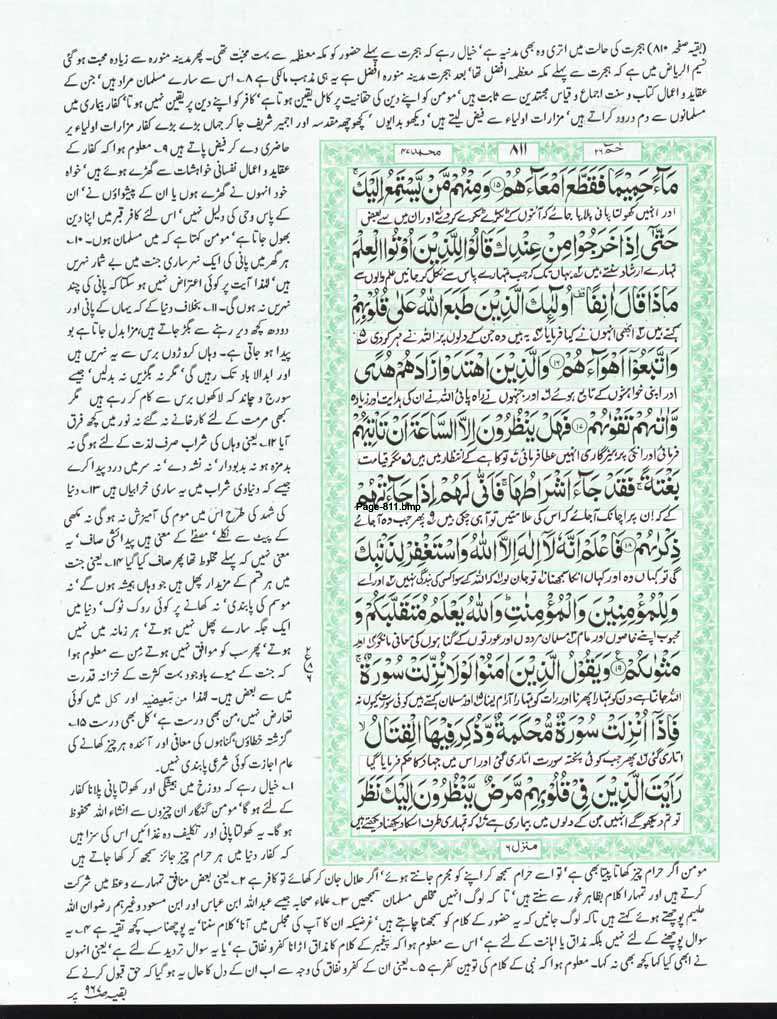 (بقیہ صفحہ ۸۱۰) ہجرت کی حالت میں اتری وہ بھی مدنیہ ہے' خیال رہے کہ ہجرت سے پہلے حضور کو مکہ معظمہ سے بہت محبت تھی۔ پھر مدینہ منورہ سے زیادہ محبت ہو گئی
نسیم الریاض میں ہے کہ ہجرت سے پہلے مکہ معظمہ افضل تھا' بعد ہجرت مدینہ منورہ افضل ہے یہ ہی مذہب مالکی ہے ۸۔ اس سے سارے مسلمان مراد ہیں' جن کے
عقاید و اعمال کتاب و سنت اجماع و قیاس مجتہدین سے ثابت ہیں' مومن کو اپنے دین کی حقانیت پر کامل یقین ہوتا ہے' کافر کو اپنے دین پر یقین نہیں ہوتا' کفار بیماری میں
مسلمانوں سے دم درود کراتے ہیں' مزارات اولیاء سے فیض لیتے ہیں' دیکھو بدایوں ' کچھوچھہ مقدسہ اور اجمیر شریف جا کر جہاں بڑے بڑے کفار مزارات اولیاء پر
حاضری دے کر فیض پاتے ہیں ۹۔ معلوم ہوا کہ کفار کے
عقاید و اعمال نفسانی خواہشات سے گھڑے ہوئے ہیں' خواہ
خود انہوں نے گھڑے ہوں یا ان کے پیشواؤں نے' ان
کے پاس وحی کی دلیل نہیں' اس لئے کافر قبر میں اپنا دین
بھول جاتا ہے' مومن کہتا ہے کہ میں مسلمان ہوں۔ ۱۰۔
ہر گھر میں پانی کی ایک نہر ساری جنت میں بے شمار نہریں
ہیں' لہٰذا آیت پر کوئی اعتراض نہیں ہو سکتا کہ پانی کی چند
نہریں نہ ہوں گی۔ ۱۱۔ بخلاف دنیا کے کہ یہاں کے پانی اور
دودھ کچھ دیر رہنے سے بگڑ جاتے ہیں' مزا بدل جاتا ہے بو
پیدا ہو جاتی ہے۔ وہاں کروڑوں برس سے یہ نہریں ہیں
اور ابدالاباد تک رہیں گی' مگر نہ بگڑیں نہ بدلیں' جیسے
سورج و چاند کہ لاکھوں برس سے کام کر رہے ہیں مگر
کبھی مرمت کے لئے کارخانے نہ گئے نہ نور میں کچھ فرق
آیا ۱۲۔ یعنی وہاں کی شراب صرف لذت کے لئے ہو گی نہ
بدمزہ ہو نہ بدبودار' نہ نشہ دے' نہ سر میں درد پیدا کرے
جیسے کہ دنیاوی شراب میں یہ ساری خرابیاں ہیں ۱۳۔ دنیا
کی شہد کی طرح اس میں موم کی آمیزش نہ ہو گی نہ مکھی
کے پیٹ سے نکلے' مصفّٰے کے معنی ہیں پیدائشی صاف' یہ
معنی نہیں کہ پہلے مخلوط تھا پھر صاف کیا گیا ۱۴۔ یعنی جنت
میں ہر قسم کے مزیدار پھل ہیں جو وہاں ہمیشہ ہوں گے' نہ
موسم کی پابندی' نہ کھانے پر کوئی روک ٹوک' دنیا میں
ایک جگہ سارے پھل نہیں ہوتے' ہر زمانہ میں نہیں
ہوتے' پھر سب کو موافق نہیں ہوتے مِن سے معلوم ہوا
کہ جنت کے میوے باوجود بہت کثرت کے خزانہ قدرت
میں سے بعض ہیں۔ لہٰذا من تبعیضیہ اور کل میں کوئی
تعارض نہیں' من بھی درست ہے' کل بھی درست ۱۵۔
گزشتہ خطاؤں' گناہوں کی معافی اور آئندہ ہر چیز کھانے کی
عام اجازت کوئی شرعی پابندی نہیں۔
۱۔ خیال رہے کہ دوزخ میں ہیشگی اور کھولتا پانی پلانا کفار
کے لئے ہو گا' مومن گنہگار ان چیزوں سے انشاء اللہ محفوظ
ہو گا۔ یہ کھولتا پانی اور تکلیف دہ غذائیں اس کی سزا ہیں
کہ کفار دنیا میں ہر حرام چیز جائز سمجھ کر کھا جاتے ہیں
حٰمٓ ۲۶
۸۱۱
محمد ۴۷
مَآءً حَمِیْمًا فَقَطَّعَ اَمْعَآءَهُمْ ۝۱۵ وَمِنْهُمْ مَّنْ یَّسْتَمِعُ اِلَیْكَ ۚ
اور انہیں کھولتا پانی پلایا جائے کہ آنتوں کے ٹکڑے ٹکڑے کر دے لہ اور ان میں سے بعض
حَتّٰۤی اِذَا خَرَجُوْا مِنْ عِنْدِكَ قَالُوْا لِلَّذِیْنَ اُوْتُوا الْعِلْمَ
تمہارے ارشاد سنتے ہیں یہاں تک کہ جب تمہارے پاس سے نکل کر جائیں علم والوں سے
مَاذَا قَالَ اٰنِفًا ۫ اُولٰٓىِٕكَ الَّذِیْنَ طَبَعَ اللّٰهُ عَلٰی قُلُوْبِهِمْ
کہتے ہیں ابھی انہوں نے کیا فرمایا یہ ہیں وہ جن کے دلوں پر اللہ نے مہر کر دی
وَاتَّبَعُوْۤا اَهْوَآءَهُمْ ۝۱۶ وَالَّذِیْنَ اهْتَدَوْا زَادَهُمْ هُدًی
اور اپنی خواہشوں کے تابع ہوئے اور جنہوں نے راہ پائی اللہ نے ان کی ہدایت اور زیادہ
وَّاٰتٰىهُمْ تَقْوٰىهُمْ ۝۱۷ فَهَلْ یَنْظُرُوْنَ اِلَّا السَّاعَةَ اَنْ تَاْتِیَهُمْ
فرمائی اور انکی پرہیزگاری انہیں عطا فرمائی تو کاہے کے انتظار میں ہیں مگر قیامت
بَغْتَةً ۚ فَقَدْ جَآءَ اَشْرَاطُهَا ۚ فَاَنّٰی لَهُمْ اِذَا جَآءَتْهُمْ
Page-811.bmp
کے کہ ان پر اچانک آ جائے کہ اس کی علامتیں تو آ ہی چکی ہیں پھر جب وہ آ جائے
ذِكْرٰىهُمْ ۝۱۸ فَاعْلَمْ اَنَّهٗ لَاۤ اِلٰهَ اِلَّا اللّٰهُ وَاسْتَغْفِرْ لِذَنْۢبِكَ
گی تو کہاں وہ اور کہاں انکا سمجھنا تو جان لو کہ اللہ کے سوا کسی کی بندگی نہیں اور اے
وَلِلْمُؤْمِنِیْنَ وَالْمُؤْمِنٰتِ ؕ وَاللّٰهُ یَعْلَمُ مُتَقَلَّبَكُمْ وَ
محبوب اپنے خاصوں اور عام مسلمان مردوں اور عورتوں کے گناہوں کی معافی مانگو اور
مَثْوٰىكُمْ ۝۱۹ وَیَقُوْلُ الَّذِیْنَ اٰمَنُوْا لَوْلَا نُزِّلَتْ سُوْرَةٌ ۚ
اللہ جانتا ہے دن کو تمہارا پھرنا اور رات کو تمہارا آرام لینا اور مسلمان کہتے ہیں کوئی سورت کیوں نہ
فَاِذَاۤ اُنْزِلَتْ سُوْرَةٌ مُّحْكَمَةٌ وَّذُكِرَ فِیْهَا الْقِتَالُ ۙ
اتاری گئی پھر جب کوئی پختہ سورت اتاری گئی اور اس میں جہاد کا حکم فرمایا گیا
رَاَیْتَ الَّذِیْنَ فِیْ قُلُوْبِهِمْ مَّرَضٌ یَّنْظُرُوْنَ اِلَیْكَ نَظَرَ
تو تم دیکھو گے انہیں جن کے دلوں میں بیماری ہے کہ تمہاری طرف اسکا دیکھنا دیکھتے ہیں
منزل ۶
مومن اگر حرام چیز کھاتا پیتا بھی ہے' تو اسے حرام سمجھ کر اپنے کو مجرم جانتے ہوئے' اگر حلال جان کر کھائے تو کافر ہے ۲۔ یعنی بعض منافق تمہارے وعظ میں شرکت
کرتے ہیں اور تمہارا کلام بظاہر غور سے سنتے ہیں' تا کہ لوگ انہیں مخلص مسلمان سمجھیں ۳۔ علماء صحابہ جیسے عبداللہ ابن عباس اور ابن مسعود وغیرہم رضوان اللہ
علیہم پوچھتے ہوئے کہتے ہیں تاکہ لوگ جانیں کہ یہ حضور کے کلام کو سمجھنا چاہتے ہیں' غرضیکہ ان کا آپ کی مجلس میں آنا' کلام سننا' یہ پوچھنا سب کچھ تقیہ ہے ۴۔ یہ
سوال پوچھنے کے لئے نہیں بلکہ مذاق یا اہانت کے لئے ہے' اس سے معلوم ہوا کہ پیغمبر کے کلام کا مذاق اڑانا کفر و نفاق ہے' یا یہ سوال تردید کے لئے ہے' یعنی انہوں
نے ابھی کیا کہا کچھ بھی نہ کہا۔ معلوم ہوا کہ نبی کے کلام کی توہین کفر ہے ۵۔ یعنی ان کے کفر و نفاق کی وجہ سے اب ان کے دل کا حال یہ ہو گیا کہ حق قبول کرنے کے
بقیہ صت ۹۶۷ پر